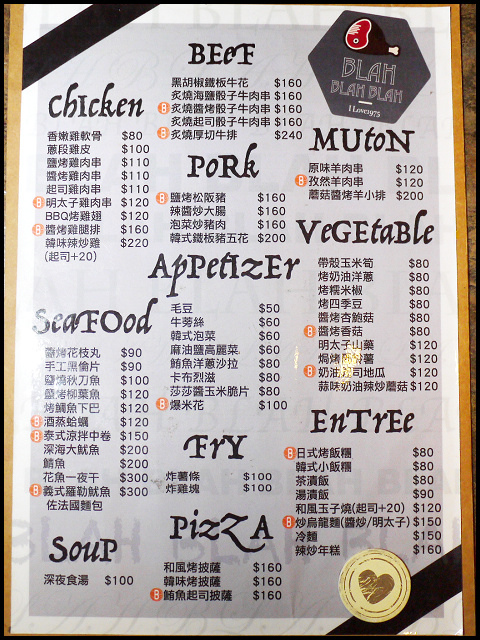 BLAH
BLAH BLAH
I Love1975
BEeF
黑胡椒鐵板牛花 $160
炙燒海鹽骰子牛肉串 $160
B 炙燒醬烤骰子牛肉串 $160
炙燒起司骰子牛肉串 $160
B 炙燒厚切牛排 $240
ChIcken
香嫩雞軟骨 $80
蔥段雞皮 $100
鹽烤雞肉串 $110
醬烤雞肉串 $110
起司雞肉串 $110
B 明太子雞肉串 $120
BBQ烤雞翅 $120
B 醬烤雞腿排 $160
韓味辣炒雞 $220
(起司+20)
PoRk
B 鹽烤松阪豬 $160
辣醬炒大腸 $160
泡菜炒豬肉 $160
韓式鐵板豬五花 $200
MUtoN
原味羊肉串 $120
B 孜然羊肉串 $120
蘑菇醬烤羊小排 $200
VeGEtaBle
帶殼玉米筍 $80
烤奶油洋蔥 $80
烤糯米椒 $80
烤四季豆 $80
醬烤杏鮑菇 $80
B 醬烤香菇 $80
明太子山藥 $120
焗烤 薯 $120
B 奶油起司地瓜 $120
蒜味奶油辣炒蘑菇 $120
ApPetIzEr
毛豆 $50
牛蒡絲 $60
韓式泡菜 $60
麻油鹽高麗菜 $60
鮪魚洋蔥沙拉 $80
卡布烈滋 $80
莎莎醬玉米脆片 $80
B 爆米花 $100
SeaFOOd
鹽烤花枝丸 $90
手工黑倫片 $90
鹽燒秋刀魚 $100
鹽烤柳葉魚 $120
烤鯛魚下巴 $120
B 酒蒸蛤蠣 $120
B 泰式涼拌中卷 $150
深海大魷魚 $200
鯖魚 $200
花魚一夜干 $300
B 義式羅勒魷魚 $300
佐法國麵包
FrY
炸薯條 $100
炸雞塊 $100
EnTrEe
B 日式烤飯糰 $80
韓式小飯糰 $80
茶漬飯 $80
湯漬飯 $90
和風玉子燒(起司+20) $120
B 炒烏龍麵(醬炒/明太子) $150
冷麵 $150
辣炒年糕 $160
PIzZA
和風烤披薩 $160
韓味烤披薩 $160
B 鮪魚起司披薩 $160
SouP
深夜食湯 $100